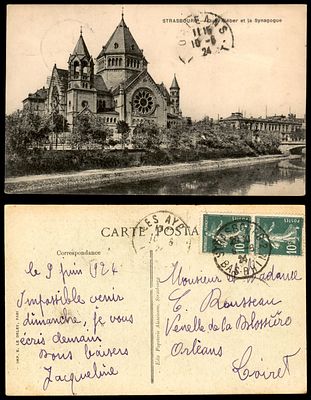 STRASBOURG Quai Kléber et la Synagogue
ORLEANS
11 15
10-6
24
CARTE POSTA
Correspondance
le 9 juin 1924
Impossible venir
dimanche, je vous
écris demain
Bons baisers
Jacqueline
Monsieur et Madame
E. Rousseau
Venelle de la
Orléans
Loiret
STRASBOURG
BAS-RHIN
24
10c
10c